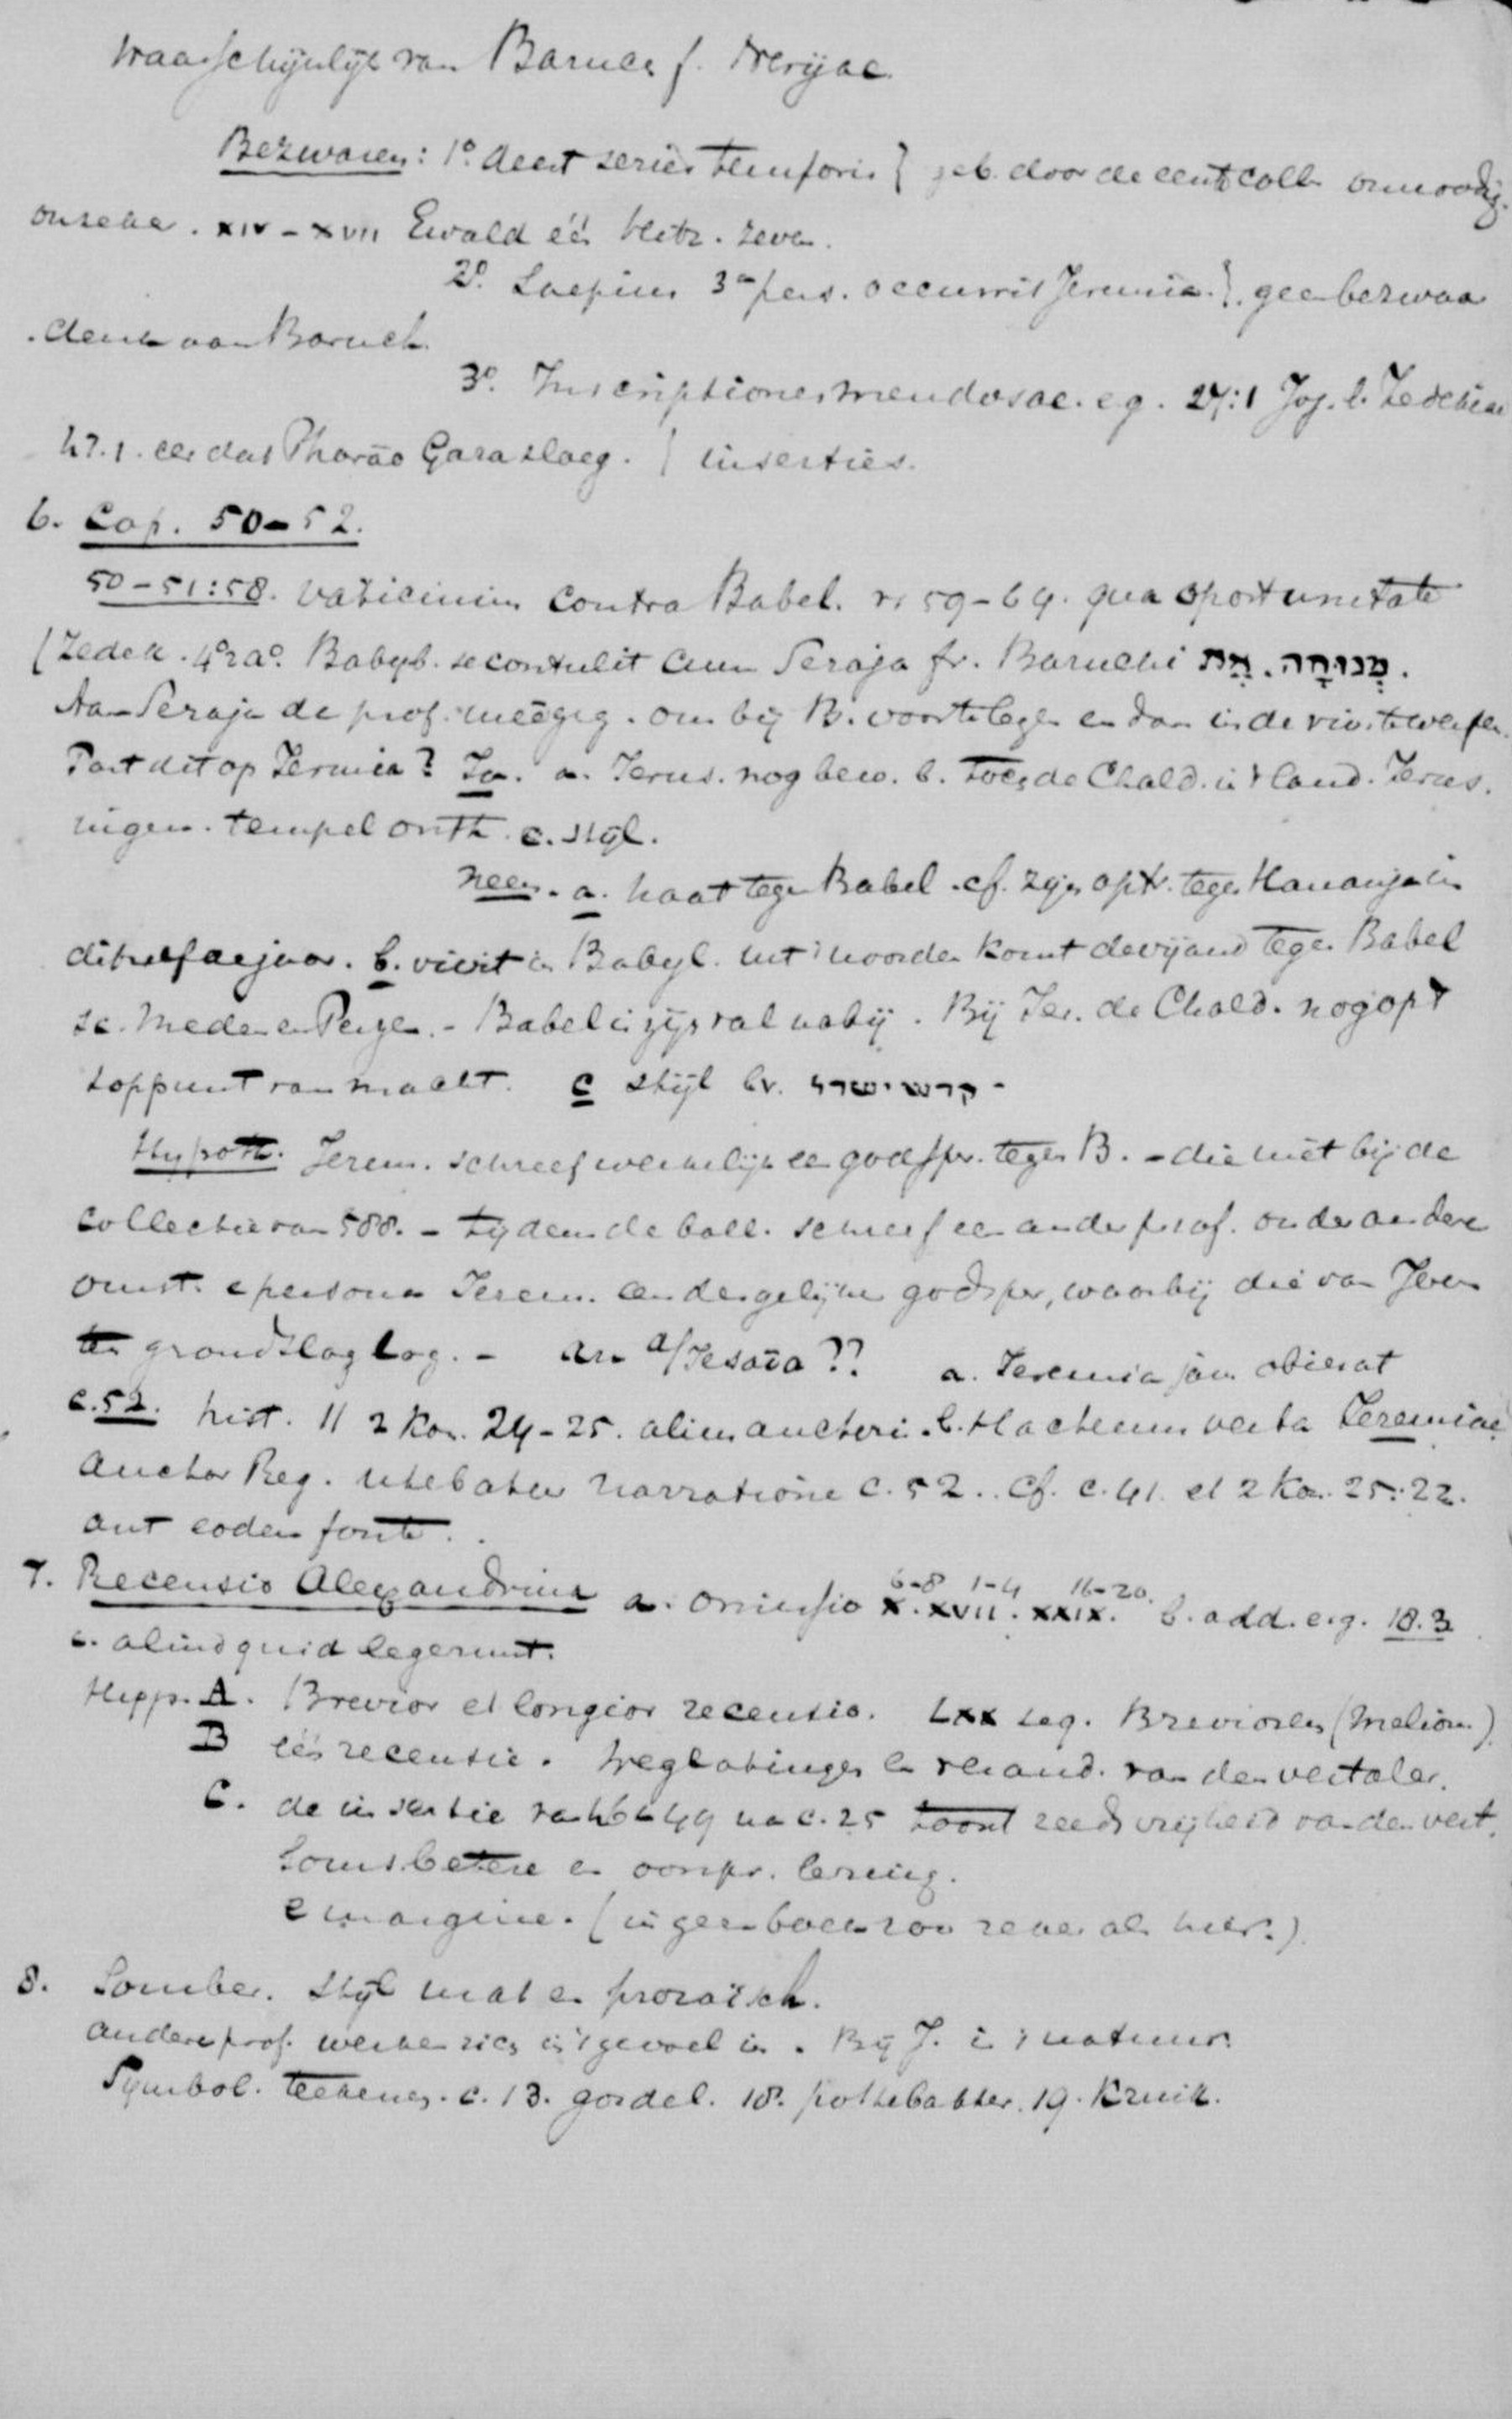 Waarschijnlijk van Baruch f. Nerijae.
Bezwaren: 1º. deest series temporis } geb. door de eerste coll. onnoodig.
onzeker. XIV-XVII Ewald één bladz. zeven.
2º. Saepius 3ª pers. occurrit Jeremia }. geen bezwaar
. denk aan Baruch.
3º. Inscriptiones mendosae. e.g. 27:1 Joj. l. Zedekiae
47.1. eer dat Pharao Gaza sloeg. } inserties.
6. Cap. 50-52.
50-51:58. vaticinium contra Babel. vs 59-64. qua oportunitate
(Zedek. 4º a º. Babyl. se contulit cum Seraja fr. Baruchi מְנוּחָה. אֶת.
Aan Seraja de prof. meêgeg. om bij B. voor te lezen en dan in de rivier te werpen.
Past dit op Jeremia? Ja. a. Jerus. nog bew. b. toen de Chald. in 't land. Jerus.
ingen. tempel onth. c. stijl.
neen. a. haat tegen Babel. cf. zijn optr. tegen Hananja in
ditzelfde jaar. b. vivit in Babyl. uit 't noorden komt de vijand tegen Babel
sc. Meden en Perzen. - Babel is zijn val nabij. Bij Jer. de Chald. nog op 't
toppunt van macht. c stijl bv. קדש ישראל -
Hypoth. Jerem. schreef werkelijk een godspr. tegen B. - die niet bij de
collectie van 588. - tijdens de ball. schreef een ander prof. onder andere
omst. e persona Jerem. een dergelijke godspr, waarbij die van Jerem
ten grondslag lag. - an a/Jesaia?? a. Jeremia jam obierat
c.52. hist. || 2 Kon. 24-25. alius auctoris. b. Hactenus verba Jeremiae
auctor Reg. utebatur narratione c. 52.. cf. c. 41. et 2 Kon. 25:22.
aut eodem fonte.
7. Recensio Alexandrina a. omissio X. 6-8 XVII. 1-4 XXIX. 16-20. b. add. e.g. 18.3
c. aliud quid legerunt.
Hypp. A. Brevior et longior recensio. LXX seq. Breviorem (melior.)
B één recensie. Weglatingen en verand. van den vertaler.
C. de insertie van 46-49 na c. 25 toont reeds vrijheid van den vert.
Soms betere en oorspr. lezing.
e margine. (in geen boek zoo zeker als hier.)
8. Somber. Stijl mat en prozaïsch.
andere prof. werken zich in 't gevoel in. Bij J. is 't natuur.
Symbol. teekenen. c. 13. gordel. 18. pottebakker. 19. Kruik.